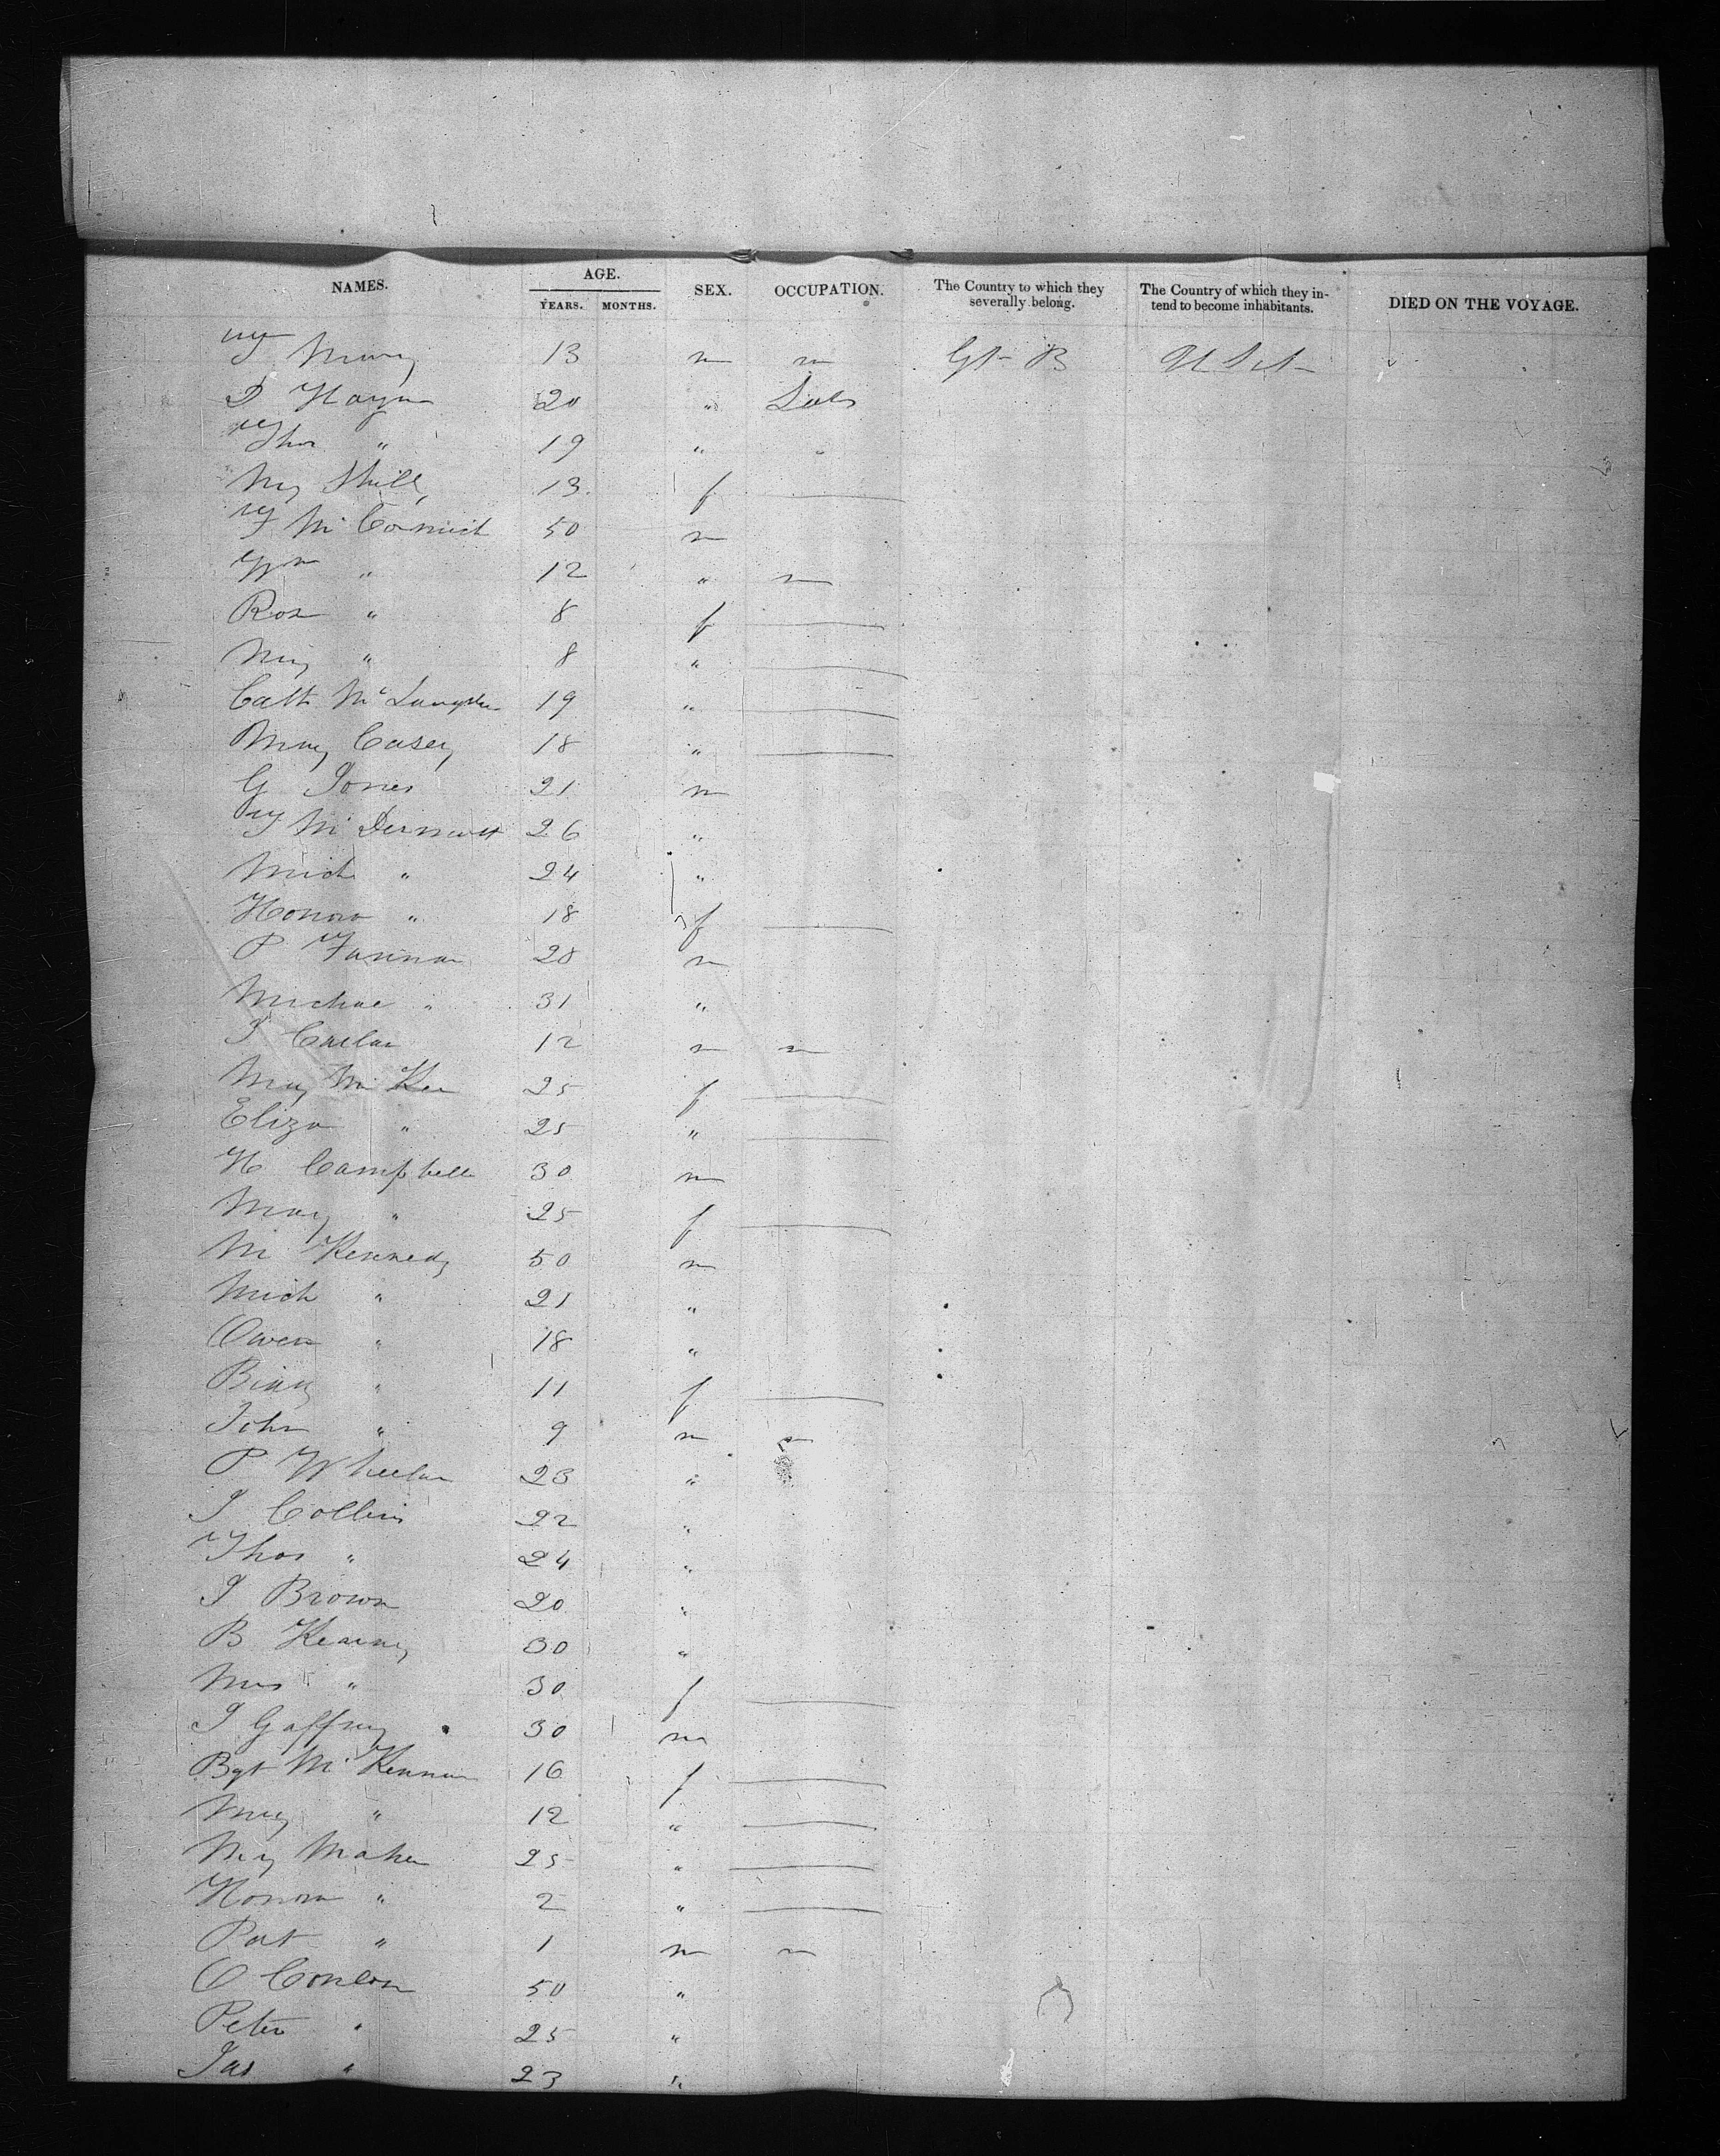 NAMES. AGE. YEARS. MONTHS. SEX. OCCUPATION. The Country to which they severally belong. The Country of which they intend to become inhabitants. DIED ON THE VOYAGE.
13 m Gt B U St
D 20 " Lab
Thos " 19 "
13 f
50 m
Wm " 12 "
Rose " 8 f
" 8 "
Cath 19 "
Mary Casey 18 "
G Jones 21 m
McDermott 26 "
Mich " 24 "
Honora " 18 f
P 28 m
Michae " 31 "
12 m
Mary McKee 25 f
Eliza " 25 "
H Campbell 30 m
Mary " 25 f
M Kennedy 50 m
Mich " 21 "
Owen " 18 "
" 11 f
John " 9 m
P Wheelan 23 "
J Collins 22 "
Thos " 24 "
J Brown 20 "
B Kearney 30 "
Mrs " 30 f
J Gaffney 30 m
Bgt McKenna 16 f
" 12 "
Maher 25 "
Honora " 2 "
Pat " 1 m
O Conlon 50 "
Peter " 25 "
Jas " 23 "